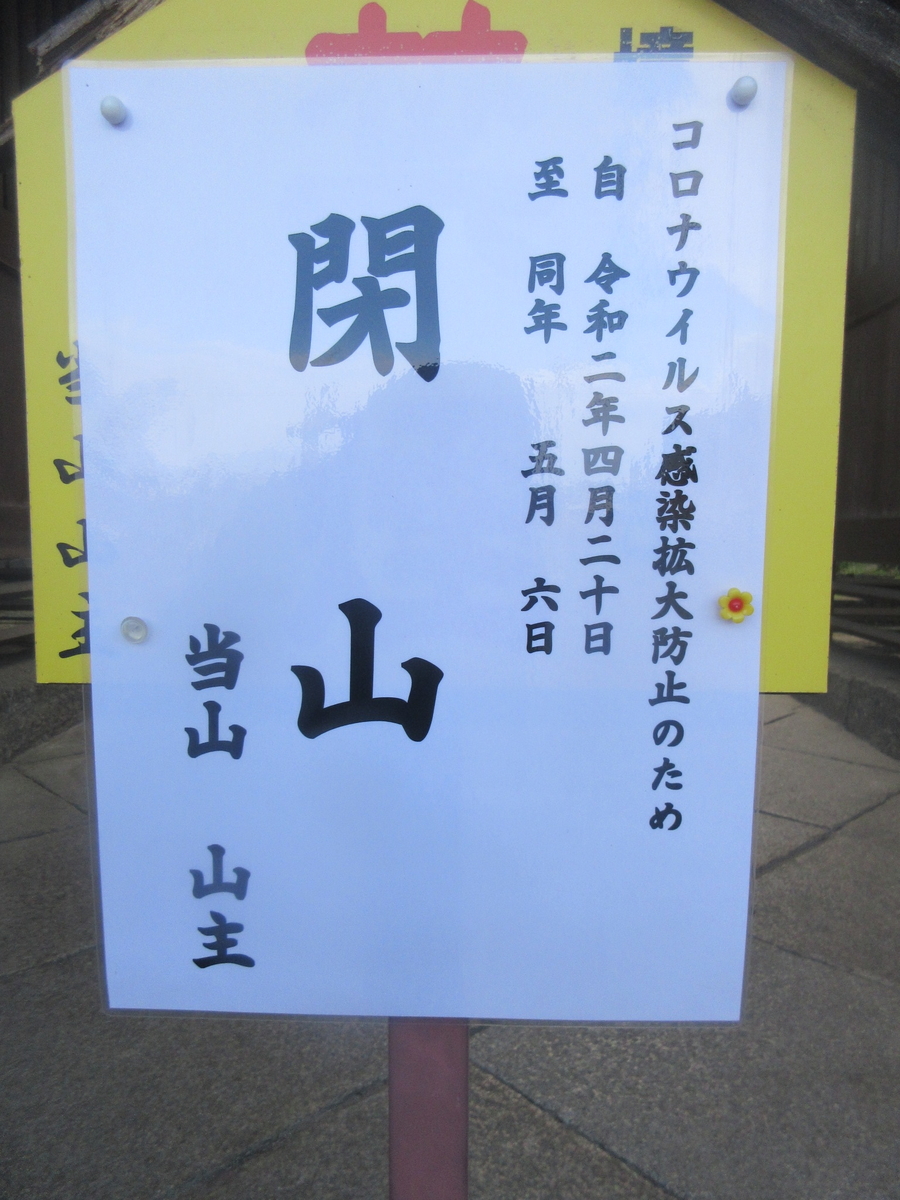 コロナウイルス感染拡大防止のため
自 令和二年四月二十日
至 同年 五月 六日
閉山
当山 山主
当山山主